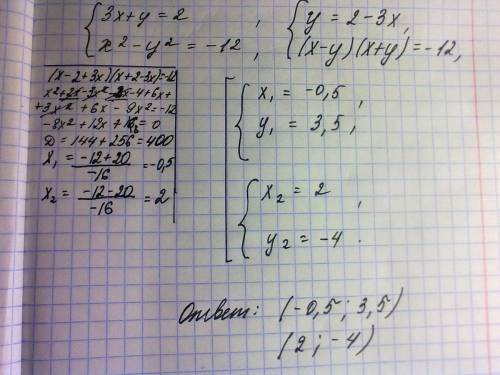 3x+y=2 ,
x²-y²=-12 ,
y=2-3x,
(x-y)(x+y)=-12,
(x-2+3x)(x+2-3x)=-12
x²+2x-3x²-2x-4+6x+
+3x²+6x-9x²=-12
-8x²+12x+16=0
D=144+256=400
x₁=(-12+20)/-16=-0,5
x₂=(-12-20)/-16=2
x₁=-0,5 ,
y₁=3,5 ,
x₂=2 ,
y₂=-4 .
Ответ: (-0,5; 3,5)
(2; -4)